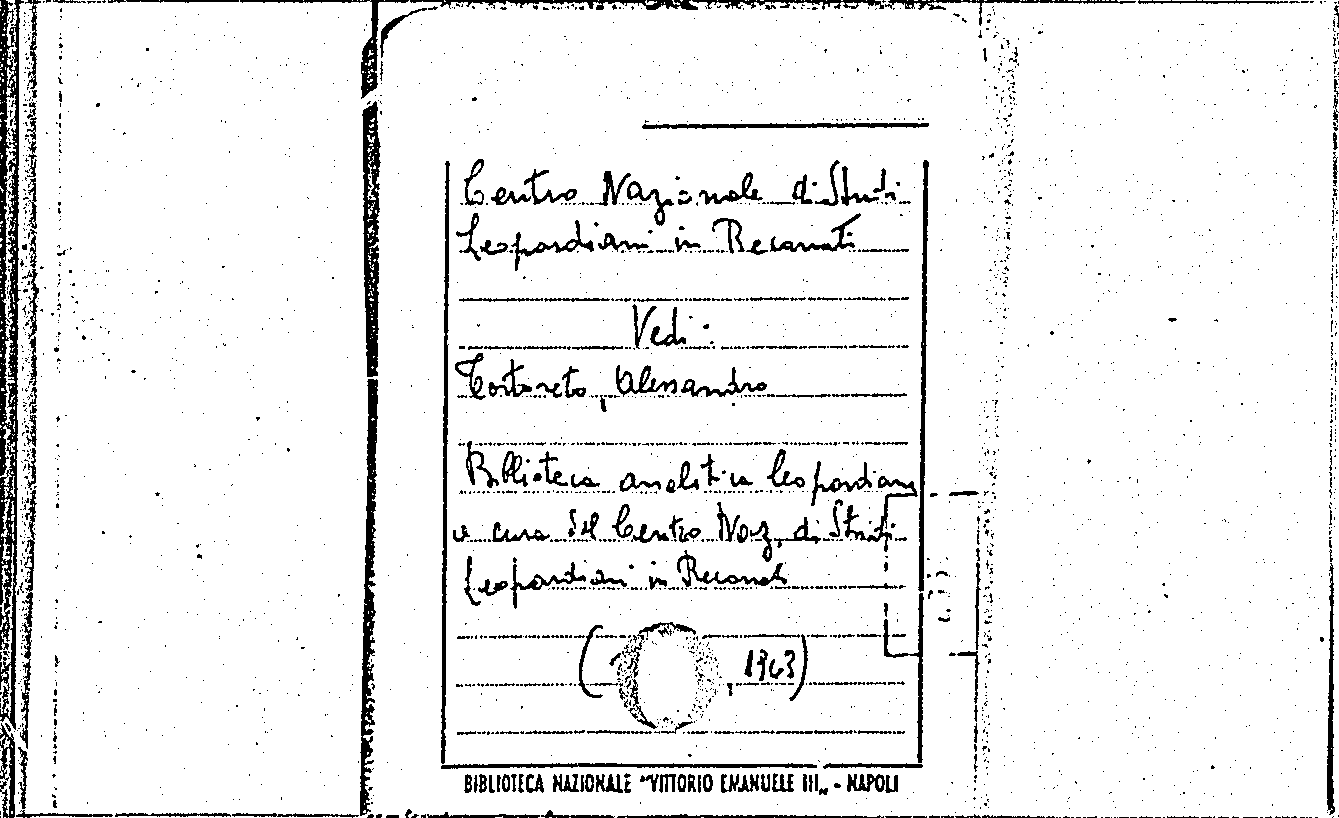 Centro Nazionale di Studi
Leopardiani in Recanati
Vedi:
Tortoreto, Alessandro
Biblioteca analitica leopardiana
a cura del Centro Naz. di Studi
Leopardiani in Recanati
( , 1963)
BIBLIOTECA NAZIONALE "VITTORIO EMANUELE III„ - NAPOLI